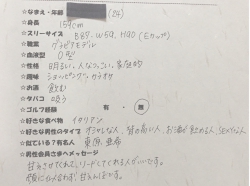 ☆なまえ・年齢 (24)
☆身長 159cm
☆スリーサイズ B89. W59. H90 (Eカップ)
☆職業 グラビアモデル
☆血液型 O型
☆性格 明るい、人なつっこい、家庭的
☆趣味 ショッピング、カラオケ
☆お酒 飲む
☆タバコ 吸う
☆ゴルフ経験 有・無
☆好きな食べ物 イタリアン
☆好きな男性のタイプ 背の高い人、お酒が飲める人、
☆似ている?有名人 東原亜希
☆男性会員さまへメッセージ
甘えさせてくれて、リードしてくれる人がいいです。